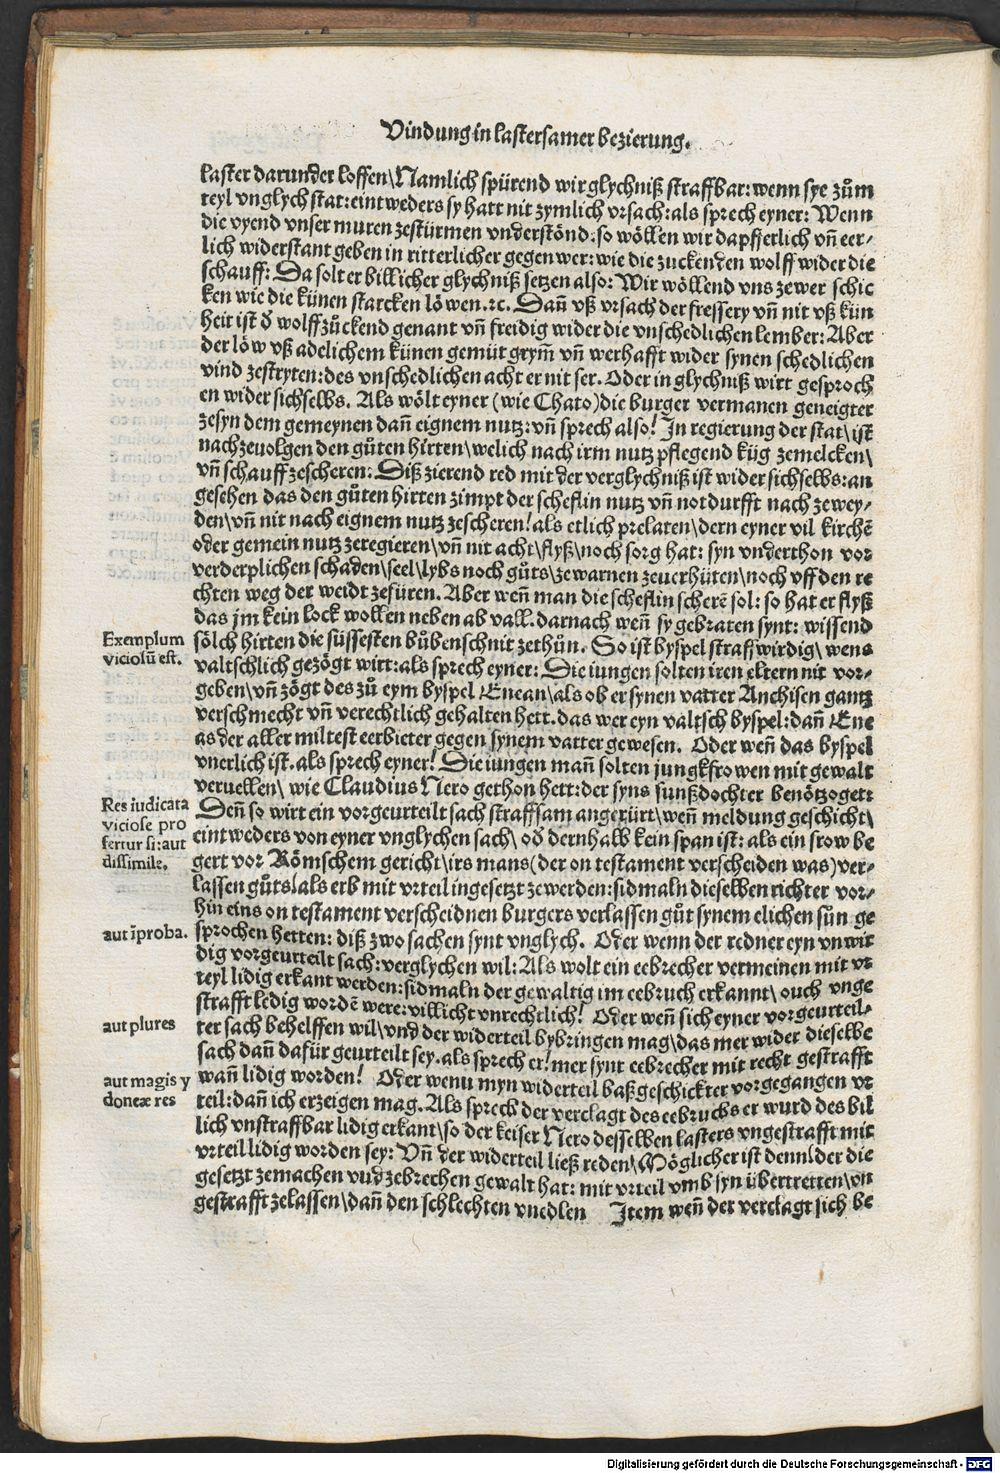 Vindung in lastersamer bezierung.
laster darunder loffen\Namlich spürend wir glychniß straffbar: wenn sye zům
teyl vnglych stat: eintweders sy hatt nit zymlich vrsach: als sprech eyner: Wenn
die vyend vnser muren zestürmen vnderstönd. so wöllen wir dapfferlich vñ eer⸗
lich widerstant geben in ritterlicher gegenwer: wie die zuckenden wolff wider die
schauff: Da solt er billicher glychniß setzen also: Wir wöllend vns ze wer schic
ken wie die künen starcken löwen. ꝛc. Dañ vß vrsach der fressery vñ nit vß kün
heit ist ð wolff zůckend genant vñ freidig wider die vnschedlichen lember: Aber
der löw vß adelichem künen gemüt grym̃ vñ werhafft wider synen schedlichen
vind zestryten: des vnschedlichen acht er nit ser. Oder in glychniß wirt gesproch
en wider sichselbs. Als wölt eyner (wie Chato) die burger vermanen geneigter
zesyn dem gemeynen dañ eignem nutz: vñ sprech also! In regierung der stat\ist
nachzeuolgen den gůten hirten\welich nach irm nutz pflegend küg zemelcken\
vñ schauff zescheren: Diß zierend red mit der verglychniß ist wider sichselbs: an
gesehen das den gůten hirten zimpt der scheflin nutz vñ notdurfft nach zewey⸗
den\vñ nit nach eignem nutz zescheren! als etlich prelaten\dern eyner vil kirchẽ
oder gemein nutz zeregieren\vñ nit acht\flyß\noch sorg hat: syn vnderthon vor
verderplichen schaden\seel\lybs noch gůts\ze warnen zeuerhüten\noch vff den re
chten weg der weidt zefüren. Aber weñ man die scheflin scherẽ sol: so hat er flyß
das jm kein lock wollen neben ab vall. darnach weñ sy gebraten synt: wissend
Exemplum
viciosũ est.
sölch hirten die süssesten bůbenschnit zethůn. So ist byspel straffwirdig\wens
valtschlich gezögt wirt: als sprech eyner: Die iungen solten iren eltern nit vor⸗
geben\vñ zögt des zů eym byspel Enean\als ob er synen vatter Anchisen gantz
verschmecht vñ verechtlich gehalten hett. das wer eyn valtsch byspel: dañ Ene
as der aller miltest eerbieter gegen synem vatter gewesen. Oder weñ das byspel
vnerlich ist. als sprech eyner! Die iungen mañ solten jungkfrowen mit gewalt
veruellen\wie Claudius Nero gethon hett: der syns sunßdochter benötzoget:
Res iudicata
viciose pro
fertur si: aut
dissimile.
Deñ so wirt ein vorgeurteilt sach straffsam angerürt\weñ meldung geschicht\
eintweders von eyner vnglychen sach\oð dernhalb kein span ist: als ein frow be
gert vor Römschem gericht\irs mans (der on testament verscheiden was) ver⸗
lassen gůts\als erb mit vrteil ingesetzt zewerden: sidmaln dieselben richter vor⸗
hin eins on testament verscheidnen burgers verlassen gůt synem elichen sůn ge
aut ĩproba.
sprochen hetten: diß zwo sachen synt vnglych. Oder wenn der redner eyn vnwir
dig vorgeurteilt sach: verglychen wil: Als wolt ein eebrecher vermeinen mit vr
teyl lidig erkant werden: sidmaln der gewaltig im eebruch erkannt\ouch vnge
strafft ledig wordẽ were: villicht vnrechtlich! Oder weñ sich eyner vorgeurteil⸗
aut plures
ter sach behelffen wil\vnd der widerteil bybringen mag\das mer wider dieselbe
sach dañ dafür geurteilt sey. als sprech er! mer synt eebrecher mit recht gestrafft
aut magis y
doneæ res
wañ lidig worden! Oder wenu myn widerteil baß geschickter vorgegangen vr
teil: dañ ich erzeigen mag. Als sprech der verclagt des eebruchs er wurd des bil
lich vnstraffbar lidig erkant\so der keiser Nero desselben lasters vngestrafft mit
vrteil lidig worden sey: Vñ der widerteil ließ reden\Möglicher ist denn\der die
gesetzt zemachen vnd zebrechen gewalt hat: mit vrteil vmb syn übertretten\vn
gestrafft zelassen\dañ den schlechten vnedlen Item weñ der verclagt sich be
Digitalisierung gefördert durch die Deutsche Forschungsgemeinschaft - DFG